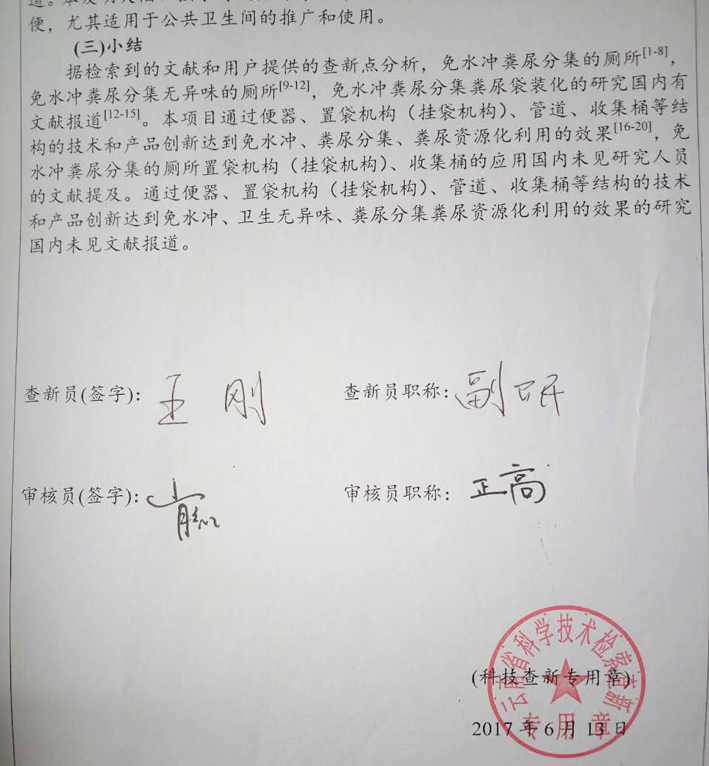 便，尤其适用于公共卫生间的推广和使用。
(三)小结
据检索到的文献和用户提供的查新点分析，免水冲粪尿分集的厕所[1-8]，
免水冲粪尿分集无异味的厕所[9-12]，免水冲粪尿分集粪尿袋装化的研究国内有
文献报道[12-15]。本项目通过便器、置袋机构（挂袋机构）、管道、收集桶等结
构的技术和产品创新达到免水冲、粪尿分集、粪尿资源化利用的效果[16-20]，免
水冲粪尿分集的厕所置袋机构（挂袋机构）、收集桶的应用国内未见研究人员
的文献提及。通过便器、置袋机构（挂袋机构）、管道、收集桶等结构的技术
和产品创新达到免水冲、卫生无异味、粪尿分集粪尿资源化利用的效果的研究
国内未见文献报道。
查新员(签字)：王刚 查新员职称：副研
审核员(签字)： 审核员职称：正高
云南省科学技术检索查新
(科技查新专用章)
专用章
2017年6月13日